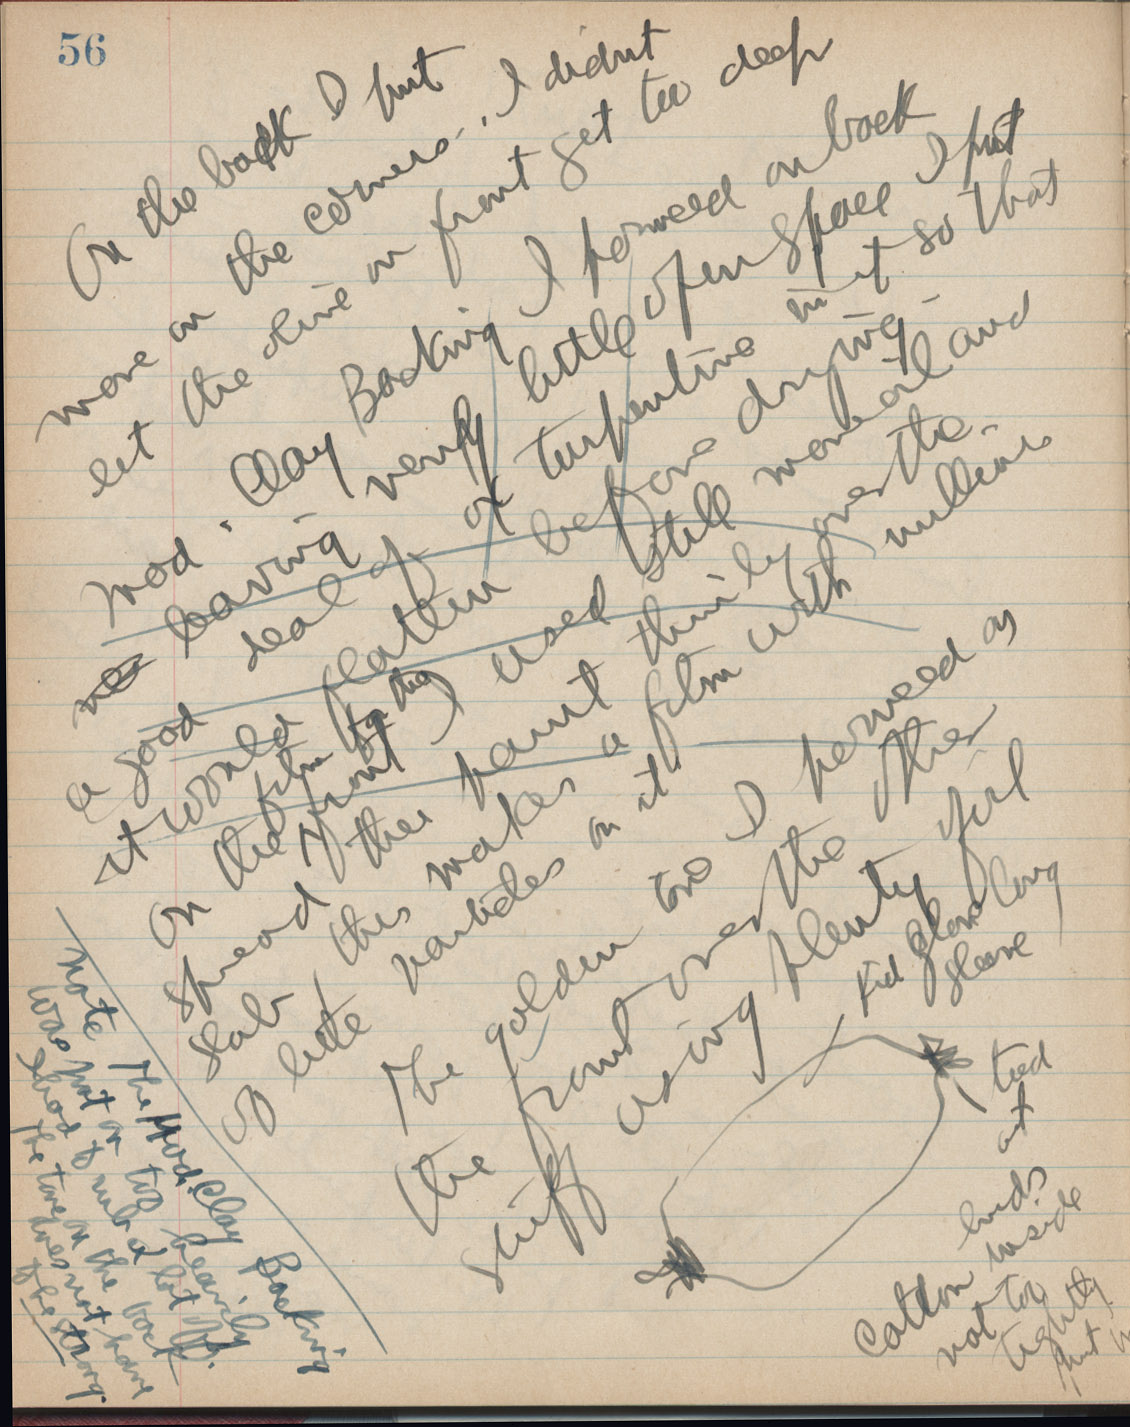 56
On the back I put
more on the corners., I didnt
let the olive on front get too deep
Mod. Clay Backing I formed on back
leaving verfy little open space I put
a good deal of of turpentine in it so that
it would flatten before drying.
On the film for the front I used still more oil and
spread the paint thinly over the
slab, this makes a film with millions
of little particles on it
The golden tone I formed as
the front over the other
stuff using plenty of oil
Kid glove long
sleeve
tied
at
ends
Cotton inside
not too
tightly
put in
Note The Mod. Clay Backing
was put on too heavily
I had to rub a lot off.
The tone on the back
does not have
to be strong.